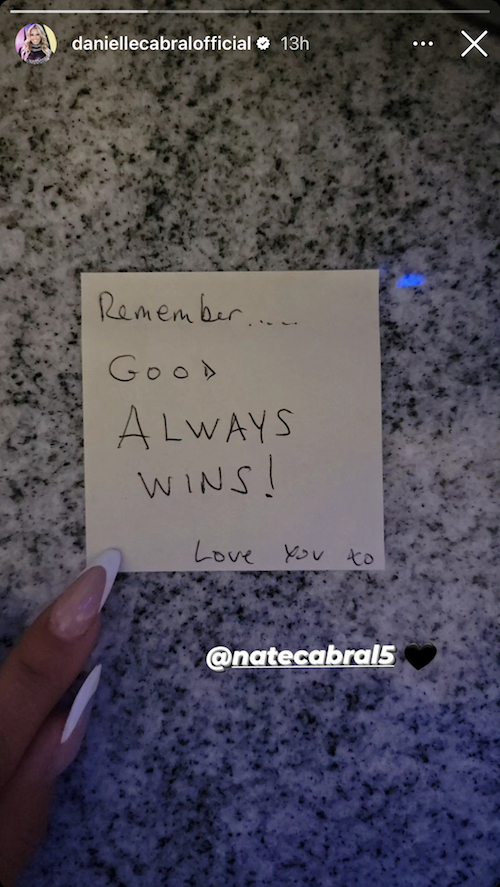 daniellecabralofficial 13h
Remember.....
GOOD
ALWAYS
WINS!
Love You xo
@natecabral5